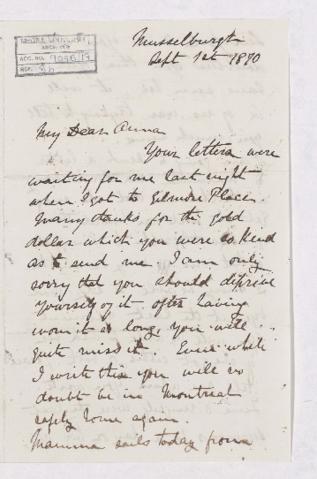 McGILL UNIVERSITY
ARCHIVES
ACC. NO.
REF.
Musselburgh
Sept 1st 1890
My Dear Anna
Your letters were
waiting for me last night
when I got to Gilmore Place.
Many thanks for the gold
dollar which you were so kind
as to send me I am only
sorry that you should deprive
yourself of it after having
worn it so long, you will
quite miss it. Even while
I write this you will no
doubt be in Montreal
safely home again.
Mamma sails today from